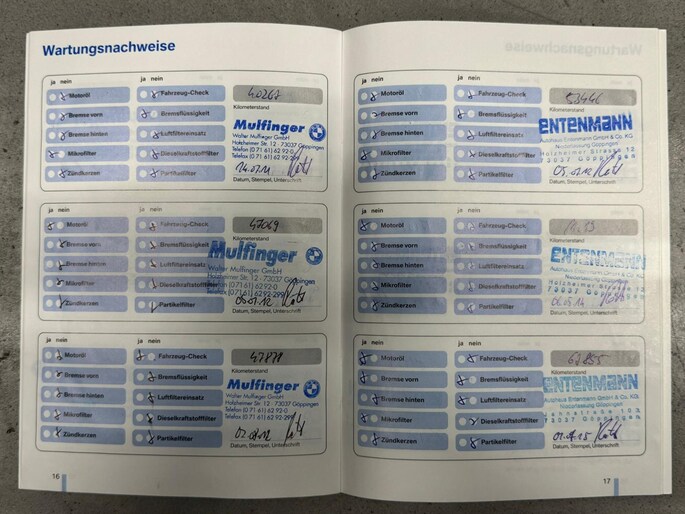 Wartungsnachweise
ja nein
ja nein
Motoröl
Fahrzeug-Check
40267
Bremse vorn
Bremsflüssigkeit
Kilometerstand
Mulfinger
Bremse hinten
Luftfiltereinsatz
Walter Mulfinger GmbH
Holzheimer Str. 12 · 73037 Göppingen
Mikrofilter
Dieselkraftstofffilter
Telefon (0 71 61) 62 92-0
Zündkerzen
Partikelfilter
Datum, Stempel, Unterschrift
ja nein
ja nein
Motoröl
Fahrzeug-Check
47049
Bremse vorn
Bremsflüssigkeit
Mulfinger
Bremse hinten
Luftfiltereinsatz
Walter Mulfinger GmbH
Holzheimer Str. 12 · 73037 Göppingen
Mikrofilter
Dieselkraftstofffilter
Telefon (0 71 61) 62 92-0
Zündkerzen
Partikelfilter
Datum, Stempel, Unterschrift
ja nein
ja nein
Motoröl
Fahrzeug-Check
47878
Kilometerstand
Bremse vorn
Bremsflüssigkeit
Mulfinger
Bremse hinten
Luftfiltereinsatz
Walter Mulfinger GmbH
Holzheimer Str. 12 · 73037 Göppingen
Telefon (0 71 61) 62 92-0
Mikrofilter
Dieselkraftstofffilter
Zündkerzen
Partikelfilter
Datum, Stempel, Unterschrift
16
ja nein
ja nein
Motoröl
Fahrzeug-Check
53446
Bremse vorn
Bremsflüssigkeit
Kilometerstand
ENTENMANN
Bremse hinten
Luftfiltereinsatz
Autohaus Entenmann GmbH & Co. KG
Niederlassung Göppingen
Holzheimer Strasse 12
Mikrofilter
Dieselkraftstofffilter
73037 Göppingen
Zündkerzen
Partikelfilter
Datum, Stempel, Unterschrift
ja nein
ja nein
Motoröl
Fahrzeug-Check
Bremse vorn
Bremsflüssigkeit
Kilometerstand
ENTENMANN
Bremse hinten
Luftfiltereinsatz
Autohaus Entenmann GmbH & Co. KG
Niederlassung Göppingen
Mikrofilter
Dieselkraftstofffilter
73037 Göppingen
Zündkerzen
Partikelfilter
Datum, Stempel, Unterschrift
ja nein
ja nein
Motoröl
Fahrzeug-Check
Kilometerstand
Bremse vorn
Bremsflüssigkeit
ENTENMANN
Bremse hinten
Luftfiltereinsatz
Autohaus Entenmann GmbH & Co. KG
Niederlassung Göppingen
Mikrofilter
Dieselkraftstofffilter
73037 Göppingen
Zündkerzen
Partikelfilter
Datum, Stempel, Unterschrift
17